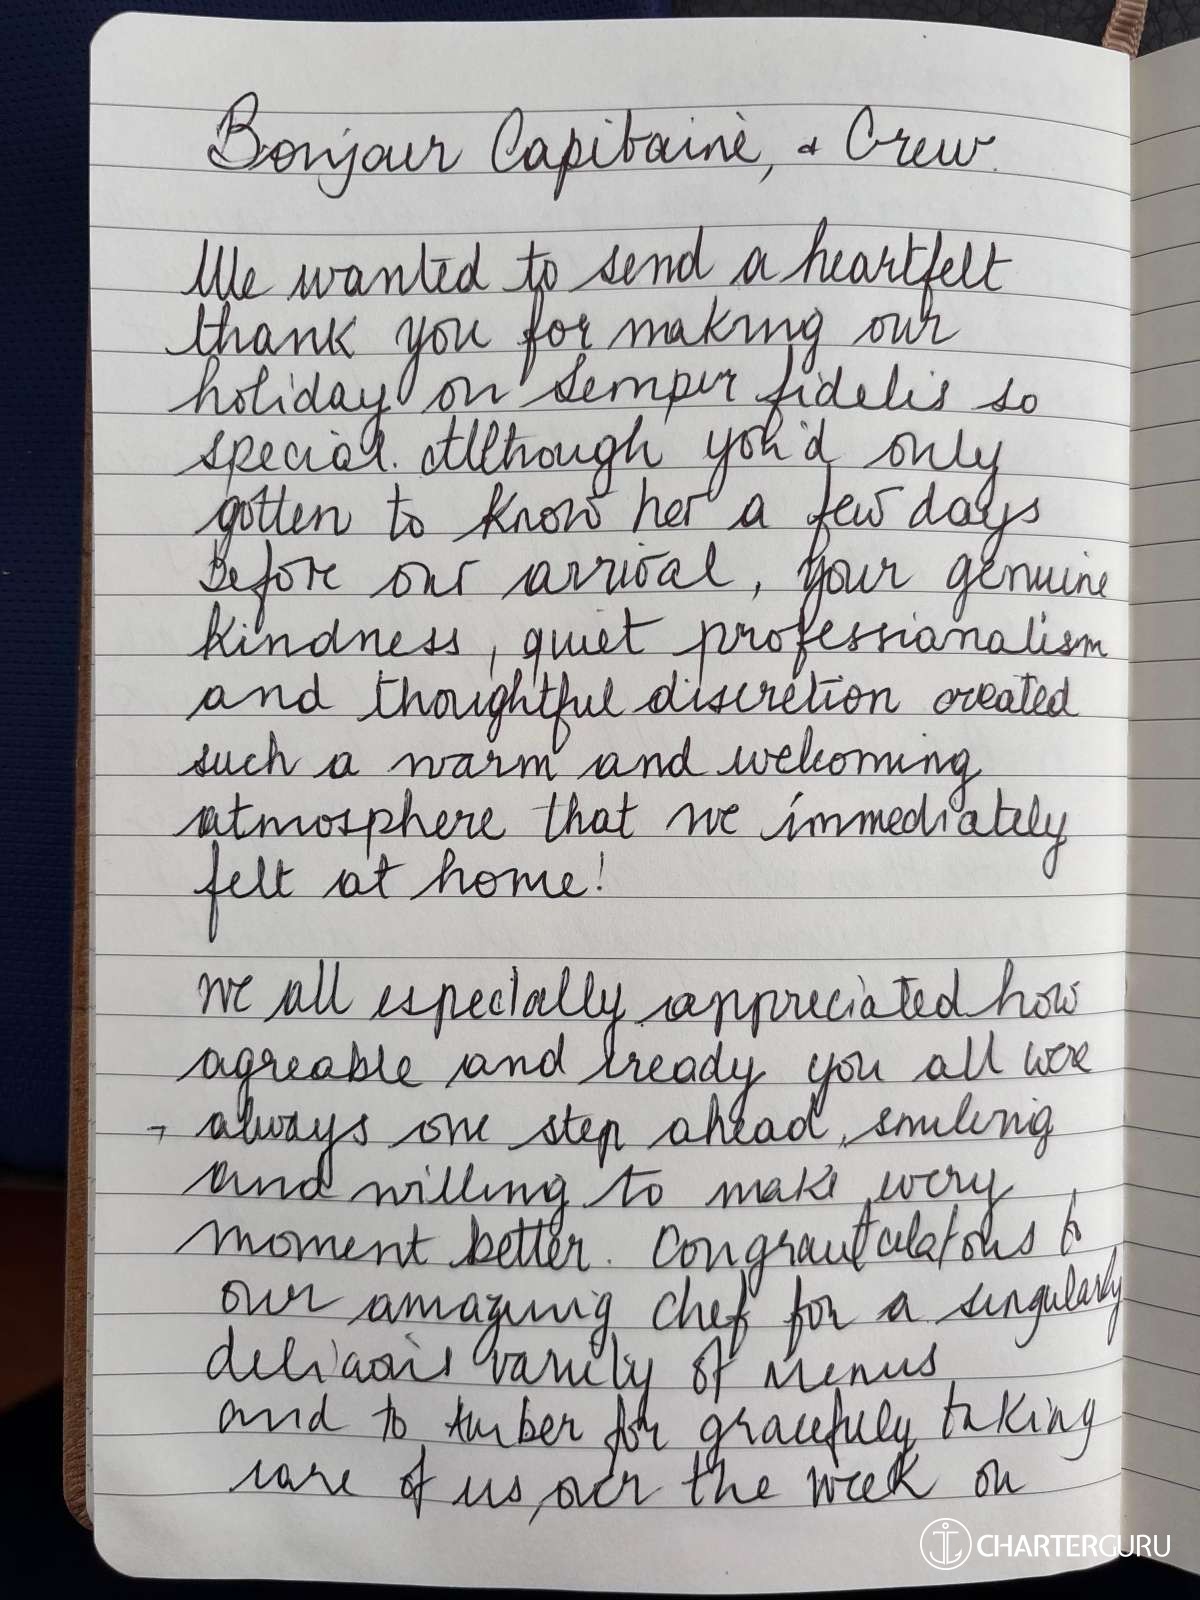 Bonjour Capitaine, & Crew.
We wanted to send a heartfelt
thank you for making our
holiday on Semper fidelis so
special. Although you'd only
gotten to know her a few days
Before our arrival, your genuine
kindness, quiet professionalism
and thoughtful discretion created
such a warm and welcoming
atmosphere that we immediately
felt at home!
We all especially appreciated how
agreable and ready you all were
always one step ahead, smiling
and willing to make every
moment better. Congratulations to
our amazing chef for a singularly
delicious variety of menus
and to Amber for gracefuly taking
care of us, over the week on
CHARTERGURU